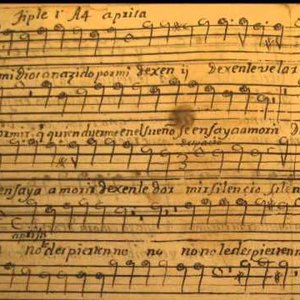 Tiple 1º A4 aprisa
mi Dios a nazido por mi dexen ij dexenle velar
ormir q quien duerme en el sueño se ensaya a morir D
despacio
ensaya a morir dexenle dor mir silençio silen
aprisa
no le despierten no no no le despierten